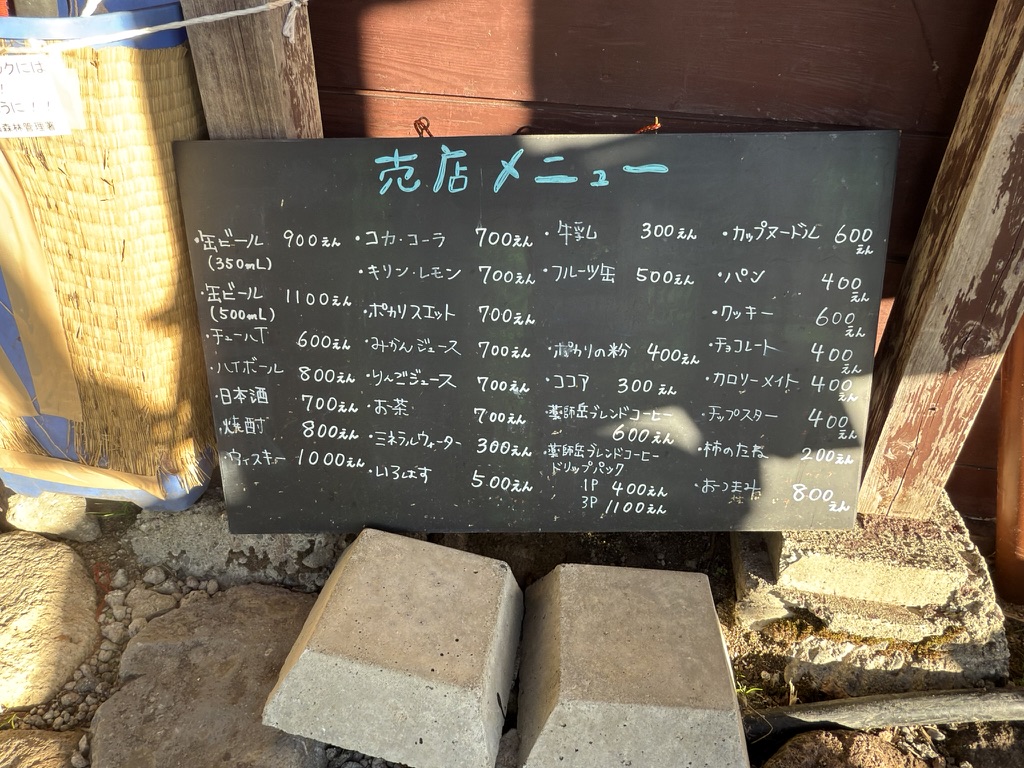 ックには
!
うに!!
森林管理署
売店メニュー
・缶ビール 900えん
(350mL)
・缶ビール 1100えん
(500mL)
・チューハイ 600えん
・ハイボール 800えん
・日本酒 700えん
・焼酎 800えん
・ウィスキー 1000えん
・コカ・コーラ 700えん
・キリン・レモン 700えん
・ポカリスエット 700えん
・みかんジュース 700えん
・りんごジュース 700えん
・お茶 700えん
・ミネラルウォーター 300えん
・いろはす 500えん
・牛乳 300えん
・フルーツ缶 500えん
・ポカリの粉 400えん
・ココア 300えん
・薬師岳ブレンドコーヒー
600えん
・薬師岳ブレンドコーヒー
ドリップパック
1P 400えん
3P 1100えん
・カップヌードル 600えん
・パン 400えん
・クッキー 600えん
・チョコレート 400えん
・カロリーメイト 400えん
・チップスター 400えん
・柿のたね 200えん
・おつまみ 800えん